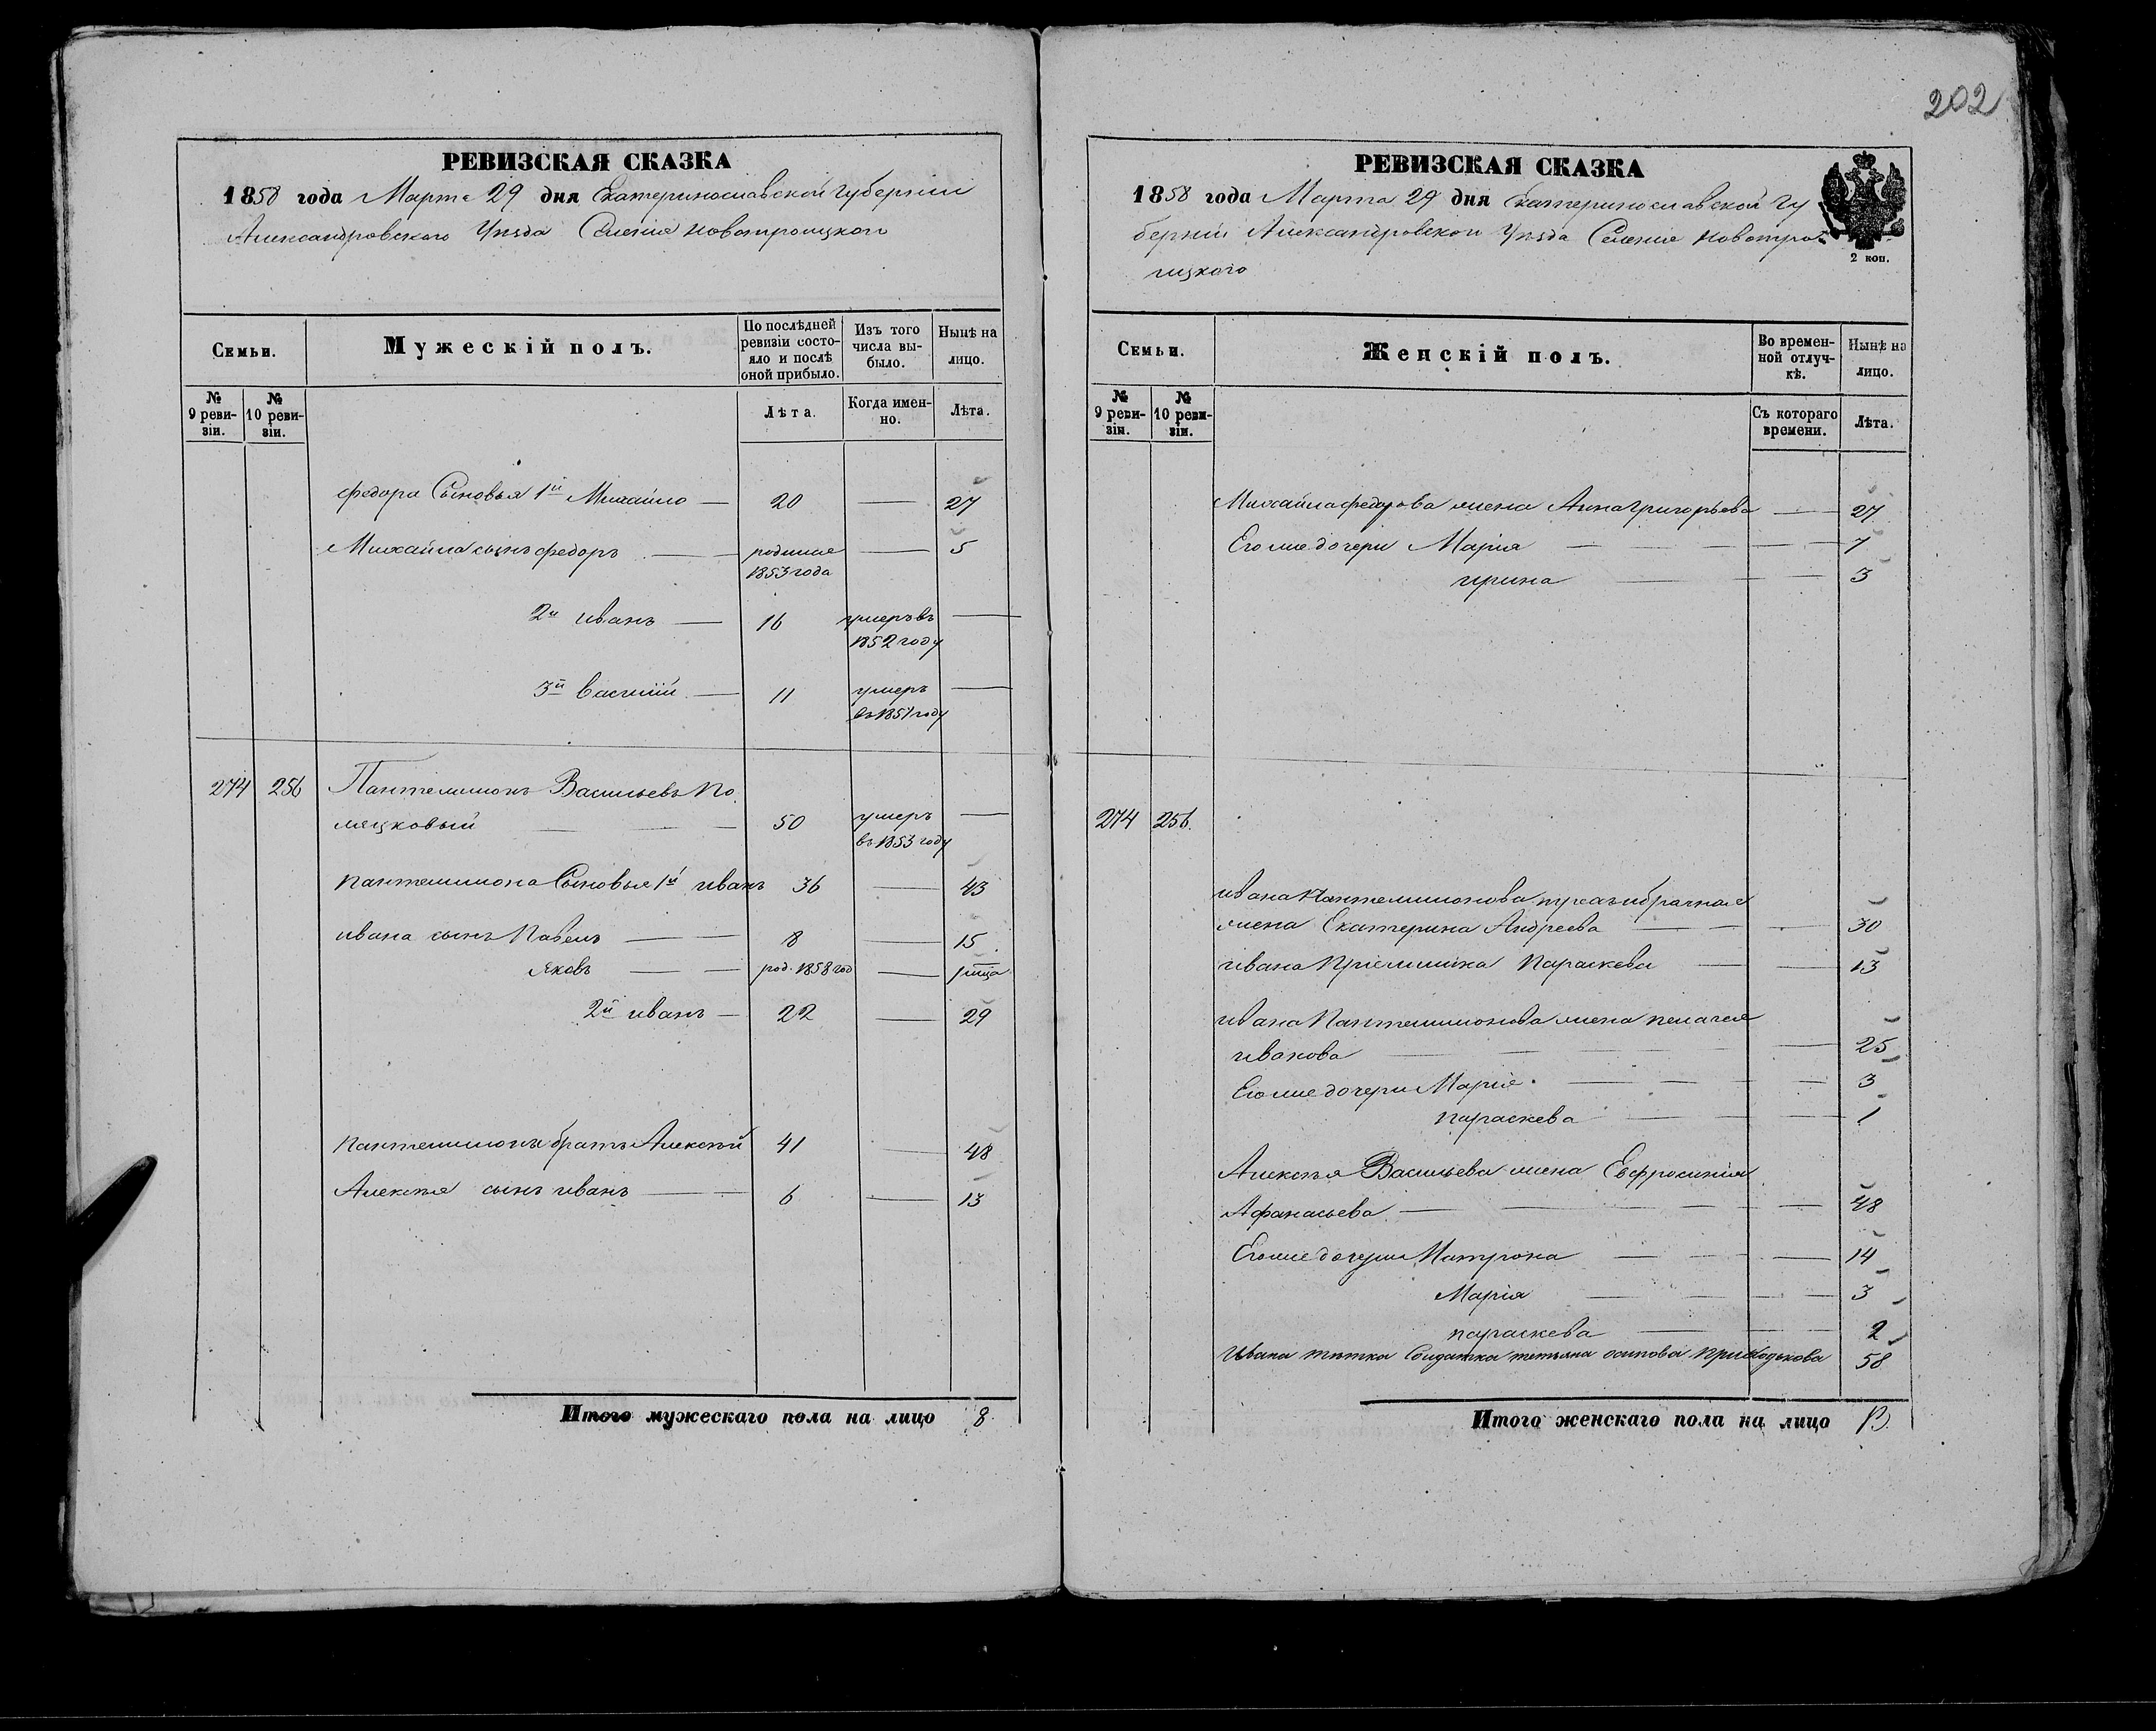 202
РЕВИЗСКАЯ СКАЗКА
1858 года Марта 29 дня Екатеринославской Губерніи
Александровского Уѣзда Селения Новотроицкого
Семьи.
Мужескій полъ.
По послѣдней ревизіи состояло и послѣ оной прибыло.
Изъ того числа выбыло.
Нынѣ на лицо.
№ 9 ревизіи.
№ 10 ревизіи.
Лѣта.
Когда именно.
Лѣта.
федора Сыновья 1й Михайло — 20 — 27
Михайла сынъ федоръ — родился — 5
1853 года
2й иванъ — 16 умеръ въ —
1852 году
3й василій — 11 умеръ —
въ 1851 году
274 256 Пантелимонъ Васильевъ По
ляцковый — 50 умеръ —
въ 1853 году
пантелимона Сыновья 1й иванъ 36 — 43
ивана сынъ Павелъ — 8 — 15
яковъ — род. 1858 год —
2й иванъ — 22 — 29
пантелимона братъ Алексѣй 41 — 48
Алексѣя сынъ иванъ — 6 — 13
Итого мужескаго пола на лицо 8.
РЕВИЗСКАЯ СКАЗКА
1858 года Марта 29 дня Екатеринославской Гу
берніи Александровского Уѣзда Селения Новотро
ицкого
2 коп.
Семьи.
Женскій полъ.
Во временной отлучкѣ.
Нынѣ на лицо.
№ 9 ревизіи.
№ 10 ревизіи.
Съ котораго времени.
Лѣта.
Михайла федорова жена Анна Григорьева — 27
Его же дочери Марія — 7
ирина — 3
274 256.
ивана Пантелимонова
жена Екатерина Андреева — 30
ивана Пріемышка Параскева — 13
ивана Пантелимонова жена пелагея
иванова — 25
Его же дочери Марія — 3
параскева — 1
Алексѣя Васильева жена Евфросинія
Афанасьева — 48
Его же дочери Матрона — 14
Марія — 3
параскева — 2
Ивана тѣтка Солдатка татьяна осипова приходькова 58
Итого женскаго пола на лицо 13.